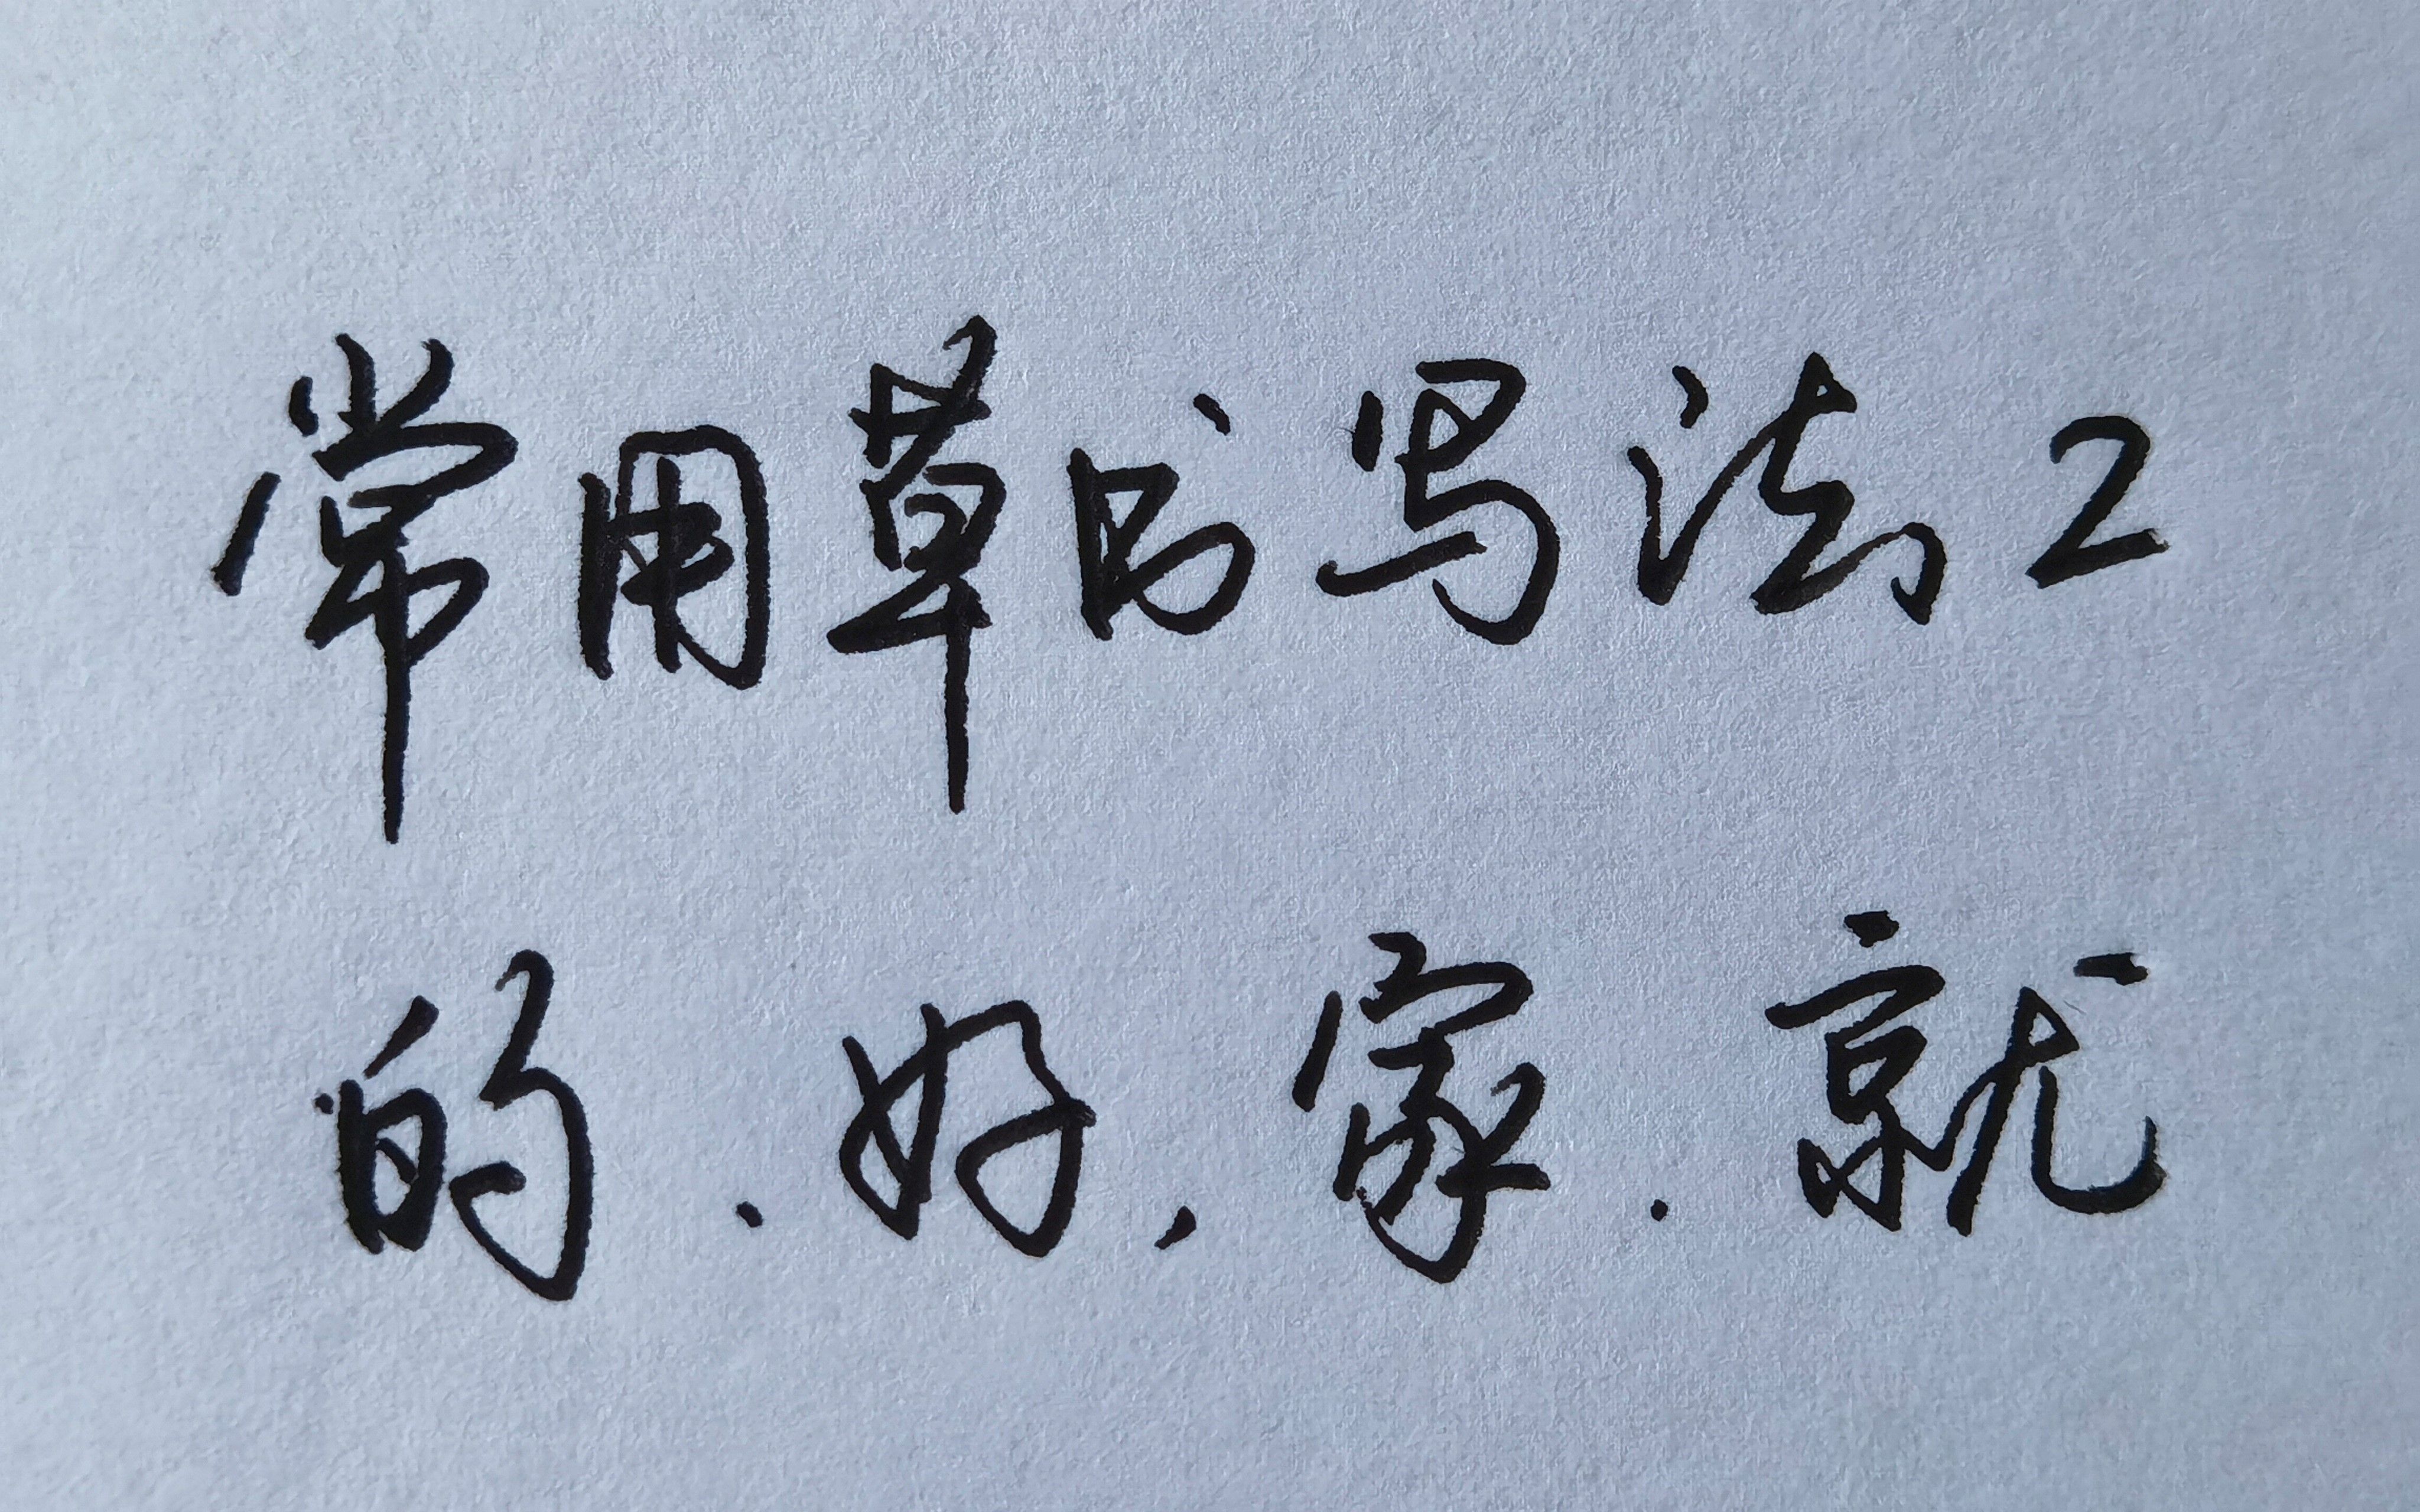 常用草书写法2
的.好,家.就